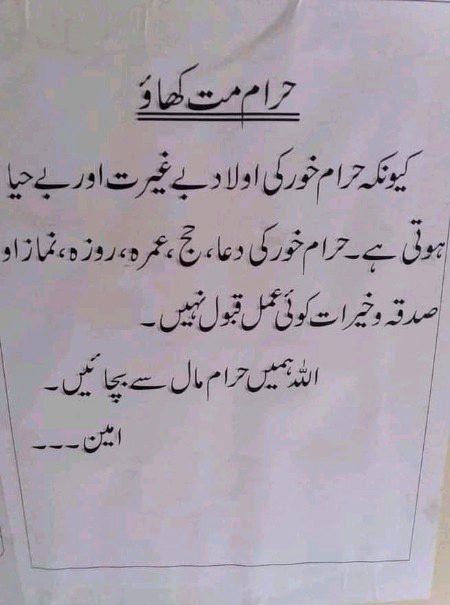 حرام مت کھاؤ
کیونکہ حرام خور کی اولاد بے غیرت اور بے حیا
ہوتی ہے۔ حرام خور کی دعا، حج، عمرہ، روزہ، نماز او
صدقہ و خیرات کوئی عمل قبول نہیں۔
اللہ ہمیں حرام مال سے بچائیں۔
امین۔۔۔